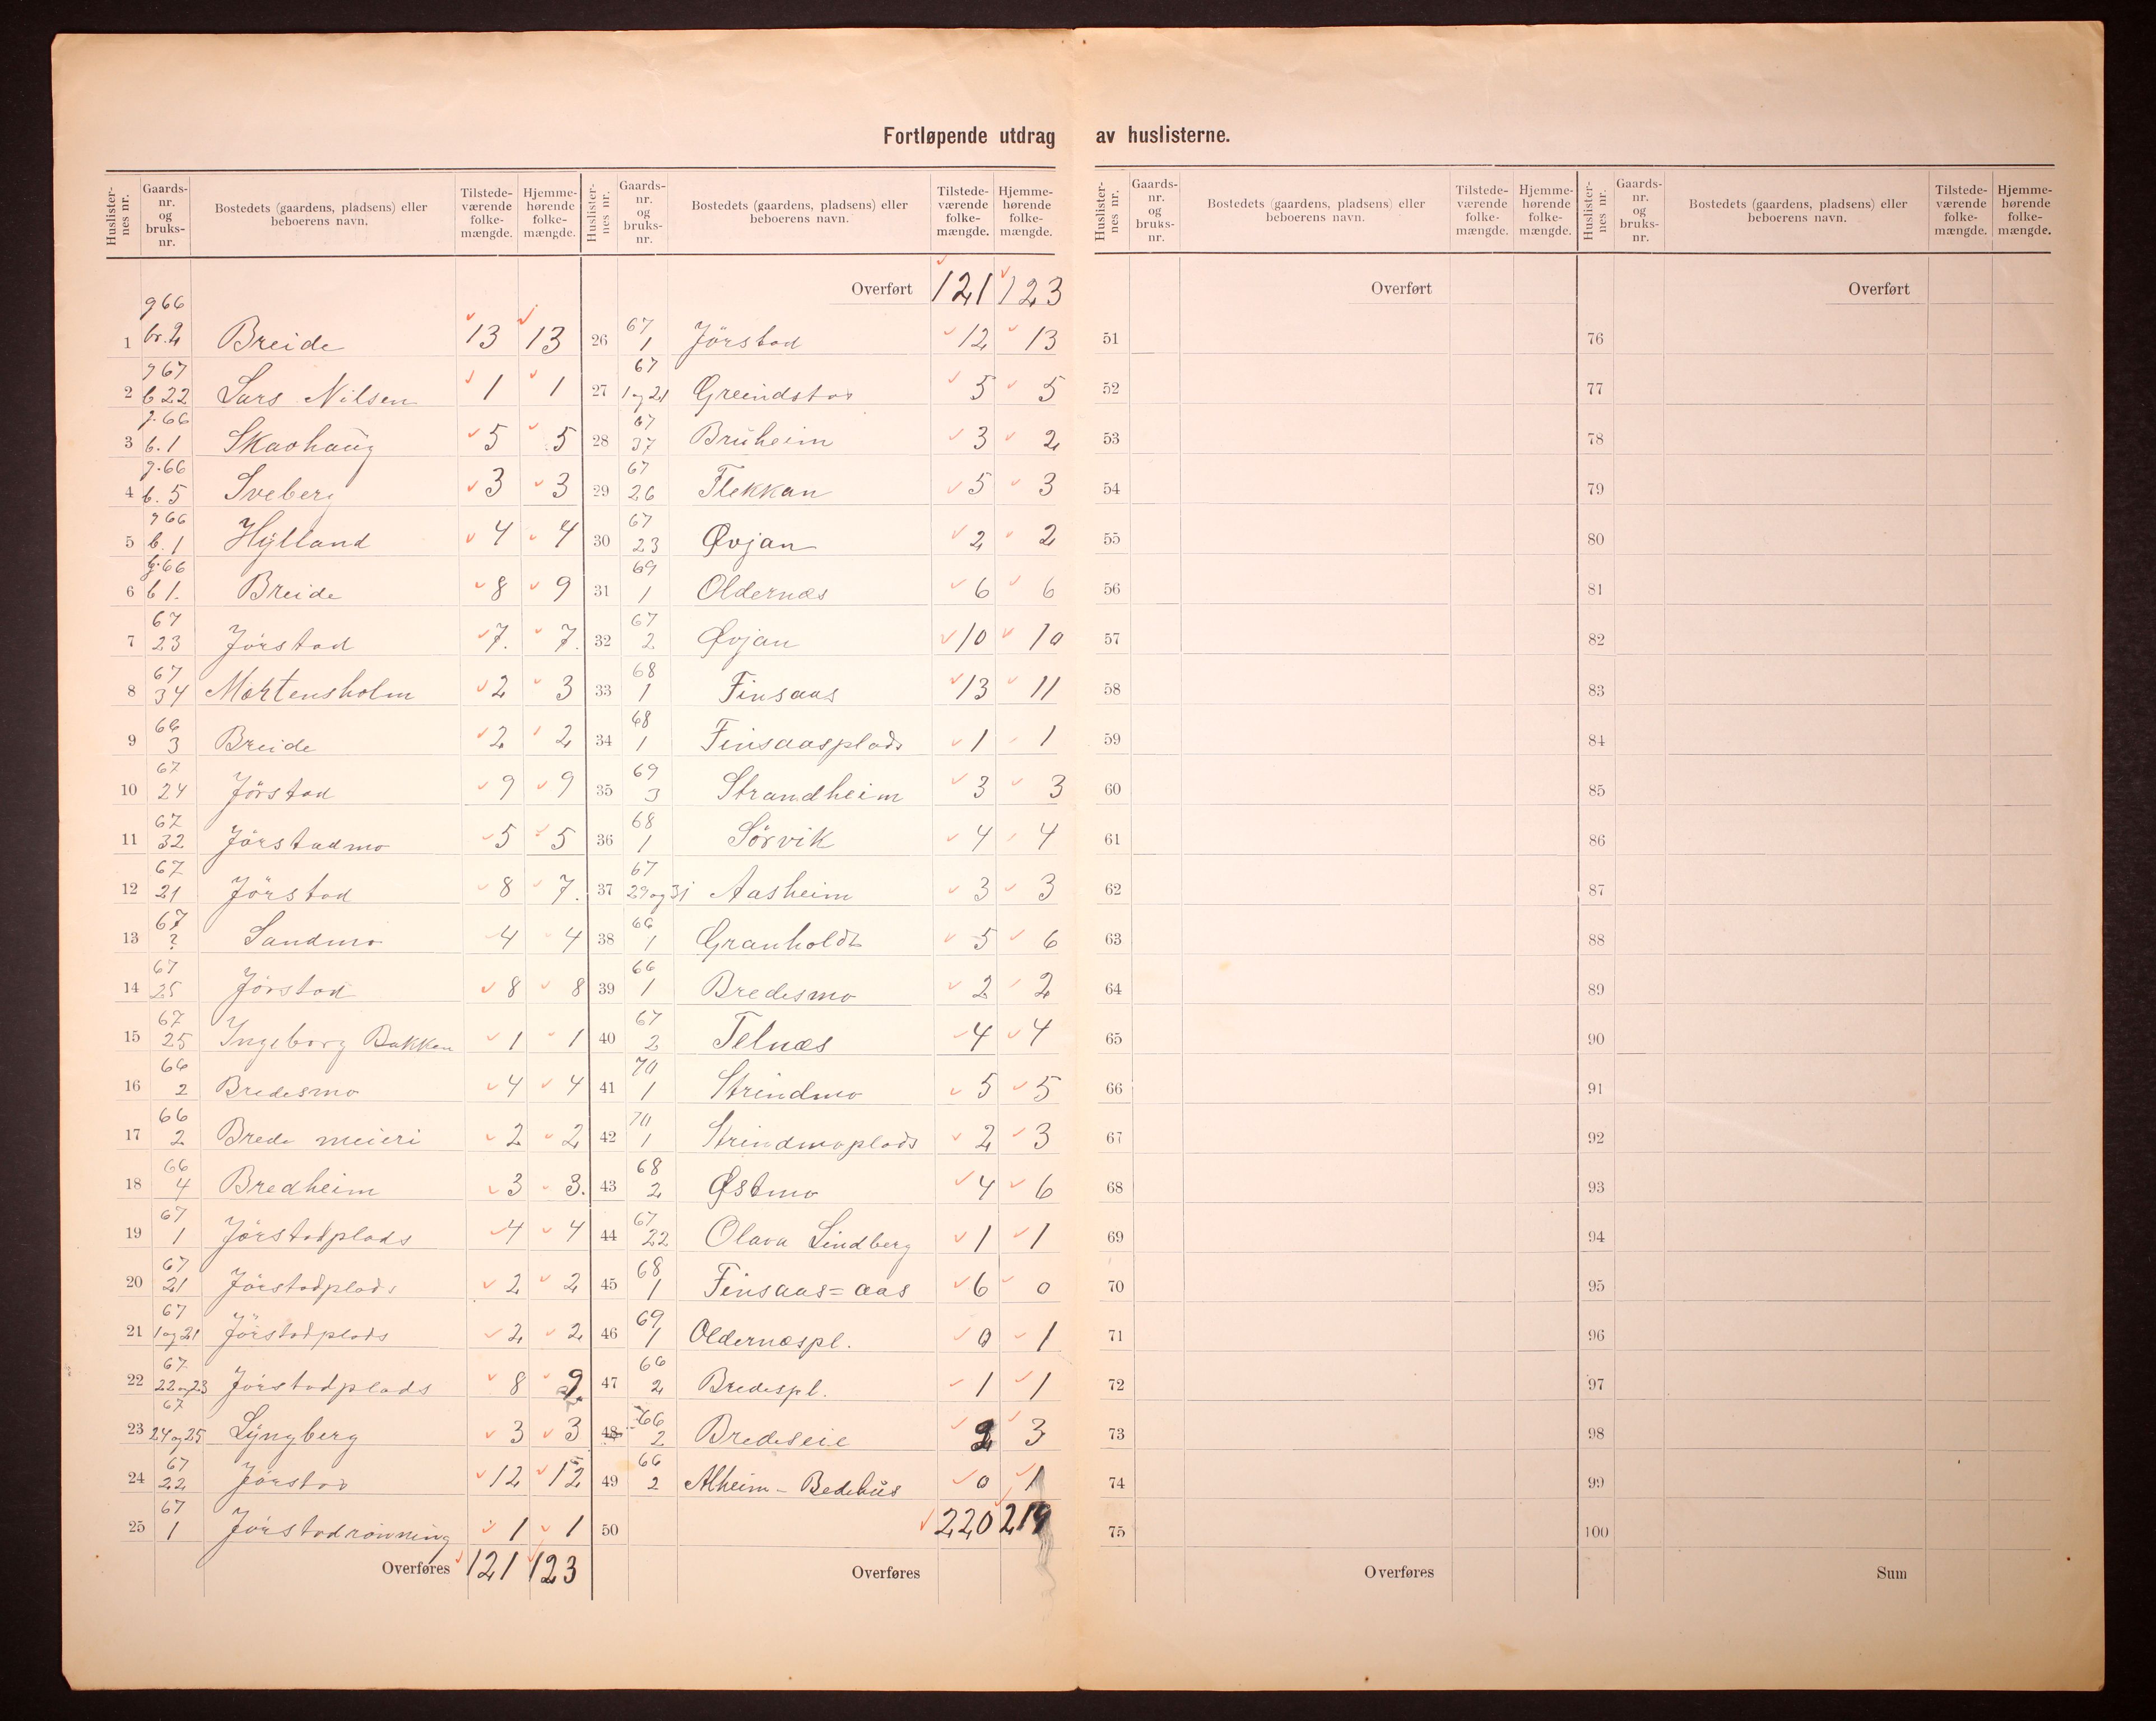 Fortløpende utdrag av huslisterne.
Huslisternes nr. Gaardsnr. og bruksnr. Bostedets (gaardens, pladsens) eller beboerens navn. Tilstedeværende folkemængde. Hjemmehørende folkemængde.
Huslisternes nr. Gaardsnr. og bruksnr. Bostedets (gaardens, pladsens) eller beboerens navn. Tilstedeværende folkemængde. Hjemmehørende folkemængde.
Huslisternes nr. Gaardsnr. og bruksnr. Bostedets (gaardens, pladsens) eller beboerens navn. Tilstedeværende folkemængde. Hjemmehørende folkemængde.
Huslisternes nr. Gaardsnr. og bruksnr. Bostedets (gaardens, pladsens) eller beboerens navn. Tilstedeværende folkemængde. Hjemmehørende folkemængde.
1 g 66 br. 2 Breide 13 13
2 g 67 b 22 Lars Nilsen 1 1
3 g. 66 b. 1 Skaohaug 5 5
4 g. 66 b. 5 Sveberg 3 3
5 g 66 b. 1 Hylland 4 4
6 g. 66 b 1. Breide 8 9
7 67 23 Jörstad 7. 7.
8 67 34 Mortensholm 2 3
9 66 3 Breide 2 2
10 67 24 Jörstad 9 9
11 67 32 Jörstadmo 5 5
12 67 21 Jörstad 8 7.
13 67 ? Sandmo 4 4
14 67 25 Jörstad 8 8
15 67 25 Ingeborg Bakken 1 1
16 66 2 Bredesmo 4 4
17 66 2 Brede meieri 2 2
18 66 4 Bredheim 3 3.
19 67 1 Jörstadplads 4 4
20 67 21 Jörstadplads 2 2
21 67 1 og 21 Jörstadplads 2 2
22 67 22 og 23 Jörstadplads 8 9
23 67 24 og 25 Lyngberg 3 3
24 67 22 Jörstad 12 12
25 67 1 Jörstadrönning 1 1
Overføres 121 123
Overført 121 123
26 67 1 Jörstad 12 13
27 67 1 og 21 Greindstad 5 5
28 67 37 Bruheim 3 2
29 67 26 Flekkan 5 3
30 67 23 Øvjan 2 2
31 69 1 Oldernæs 6 6
32 67 2 Øvjan 10 10
33 68 1 Finsaas 13 11
34 68 1 Finsaasplads 1 1
35 69 3 Strandheim 3 3
36 68 1 Sörvik 4 4
37 67 29 og 31 Aasheim 3 3
38 66 1 Granholdt 5 6
39 66 1 Bredesmo 2 2
40 67 2 Telnæs 4 4
41 70 1 Strindmo 5 5
42 70 1 Strindmoplads 2 3
43 68 2 Østmo 4 6
44 67 22 Olava Lindberg 1 1
45 68 1 Finsaas=aas 6 0
46 69 1 Oldernæspl. 0 1
47 66 2 Bredespl. 1 1
48 66 2 Bredeseie 2 3
49 66 2 Alheim - Bedehus 0 1
50 220 219
Overføres
Overført
51
52
53
54
55
56
57
58
59
60
61
62
63
64
65
66
67
68
69
70
71
72
73
74
75
Overføres
Overført
76
77
78
79
80
81
82
83
84
85
86
87
88
89
90
91
92
93
94
95
96
97
98
99
100
Sum